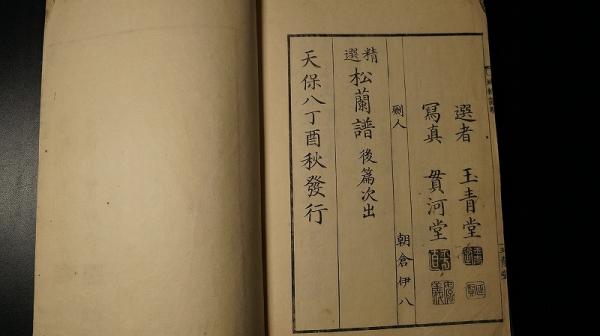 選者 玉青堂
寫真 貫河堂
刪人 朝倉伊八
精選 松蘭譜 後篇次出
天保八丁酉秋發行